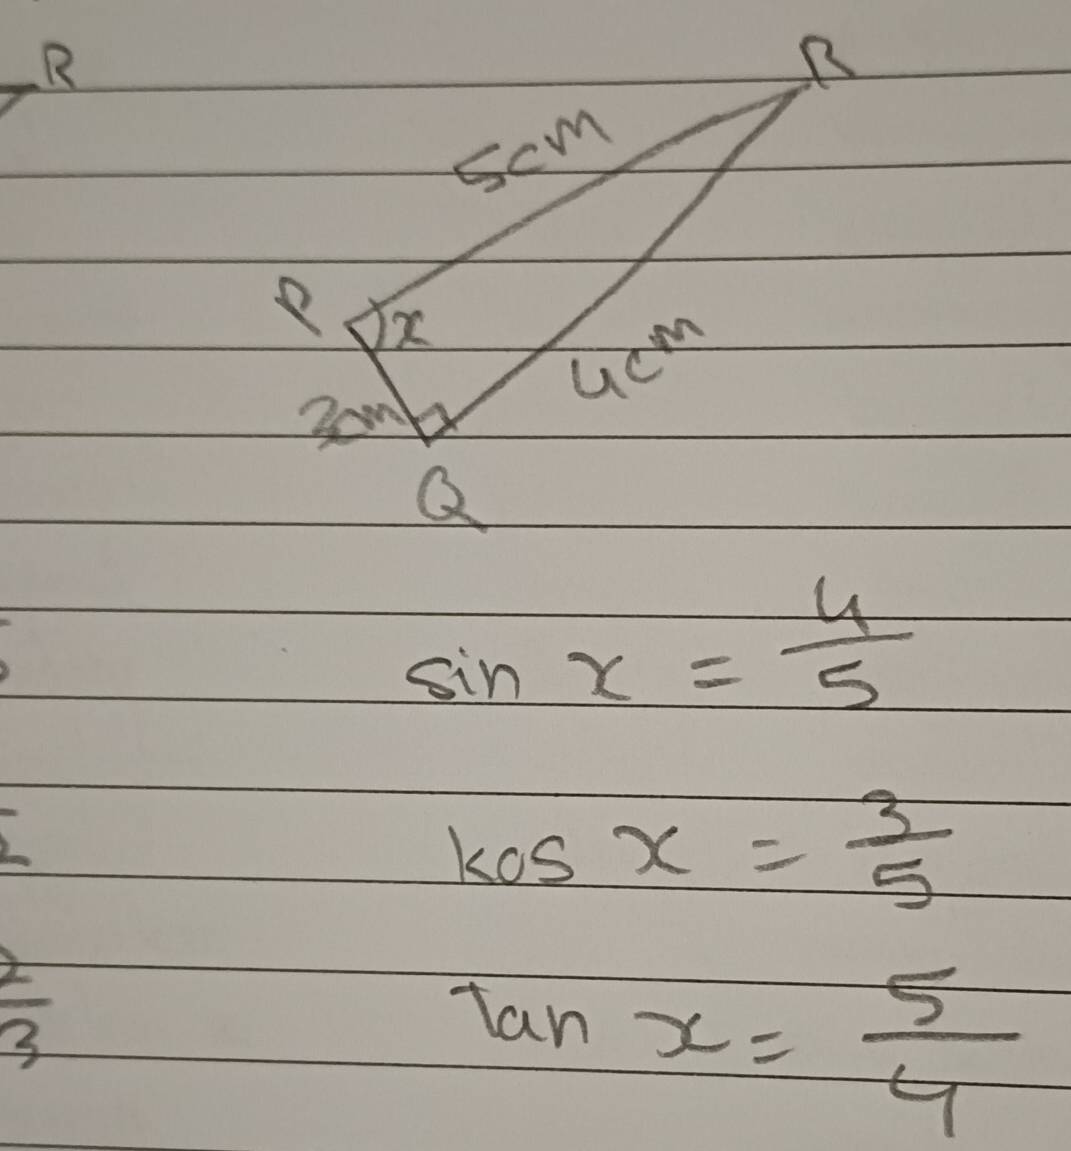 R
R
5cm
P
x
3cm
4cm
Q
sin x = 4/5
kos x = 3/5
2/3
Tan x = 5/4